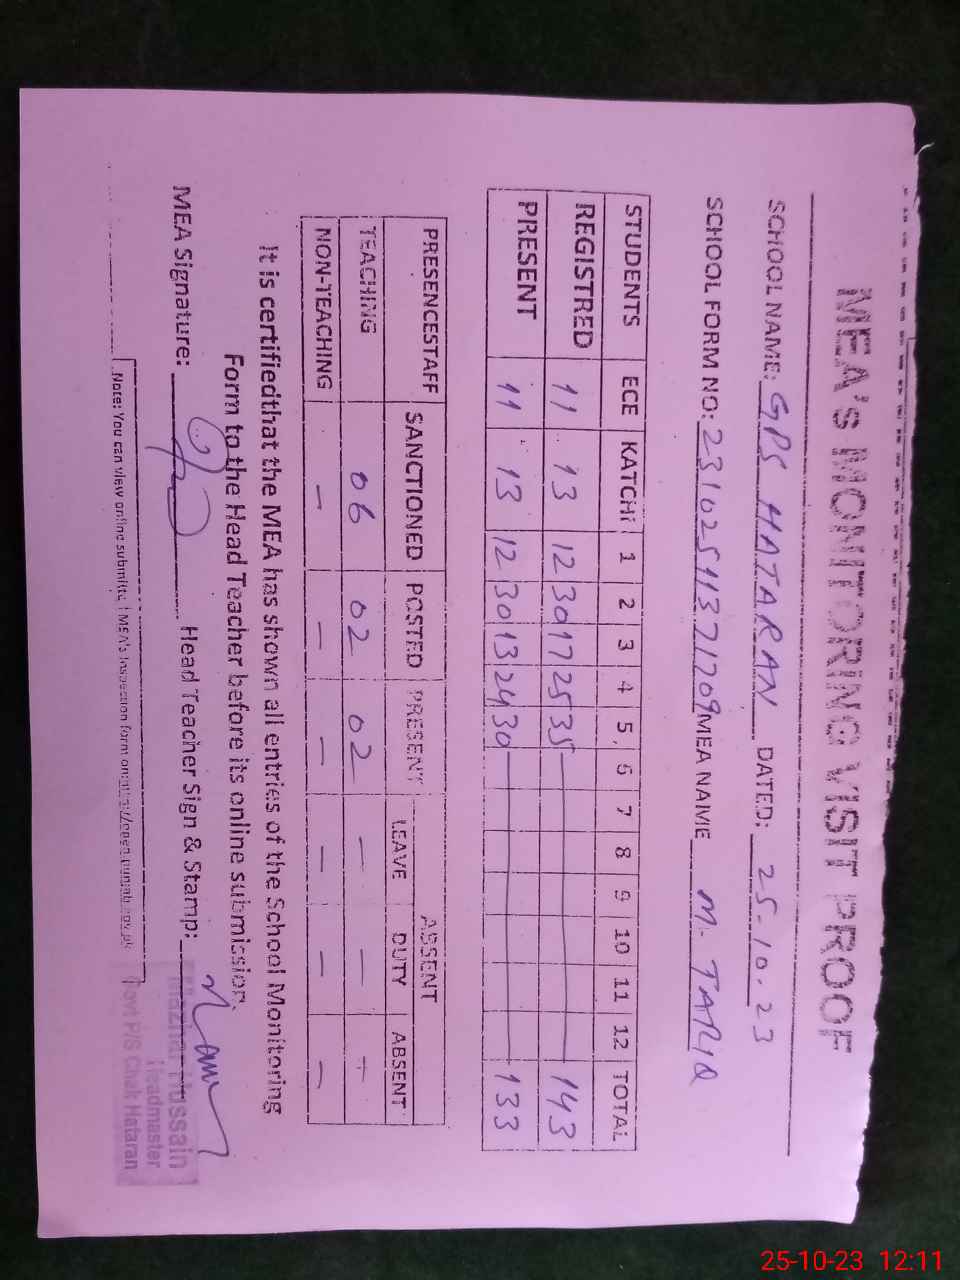 MEA's MONITORING VISIT PROOF
SCHOOL NAME: GPS HATARAN DATED: 25-10-23
SCHOOL FORM NO: MEA NAME M. TARIQ
STUDENTS ECE KATCHI 1 2 3 4 5 6 7 8 9 10 11 12 TOTAL
REGISTRED 11 13 12 30 17 25 35 143
PRESENT 11 13 12 30 13 24 30 133
PRESENCESTAFF SANCTIONED POSTED PRESENT ABSENT
LEAVE DUTY ABSENT
TEACHING 06 02 02 — — —
NON-TEACHING — — — — — —
It is certifiedthat the MEA has shown all entries of the School Monitoring
Form to the Head Teacher before its online submission.
MEA Signature: Head Teacher Sign & Stamp:
Mazhar Hussain
Headmaster
Govt P/S Chak Hataran
Note: You can view online submitted MEA's Inspection form on
25-10-23 12:11